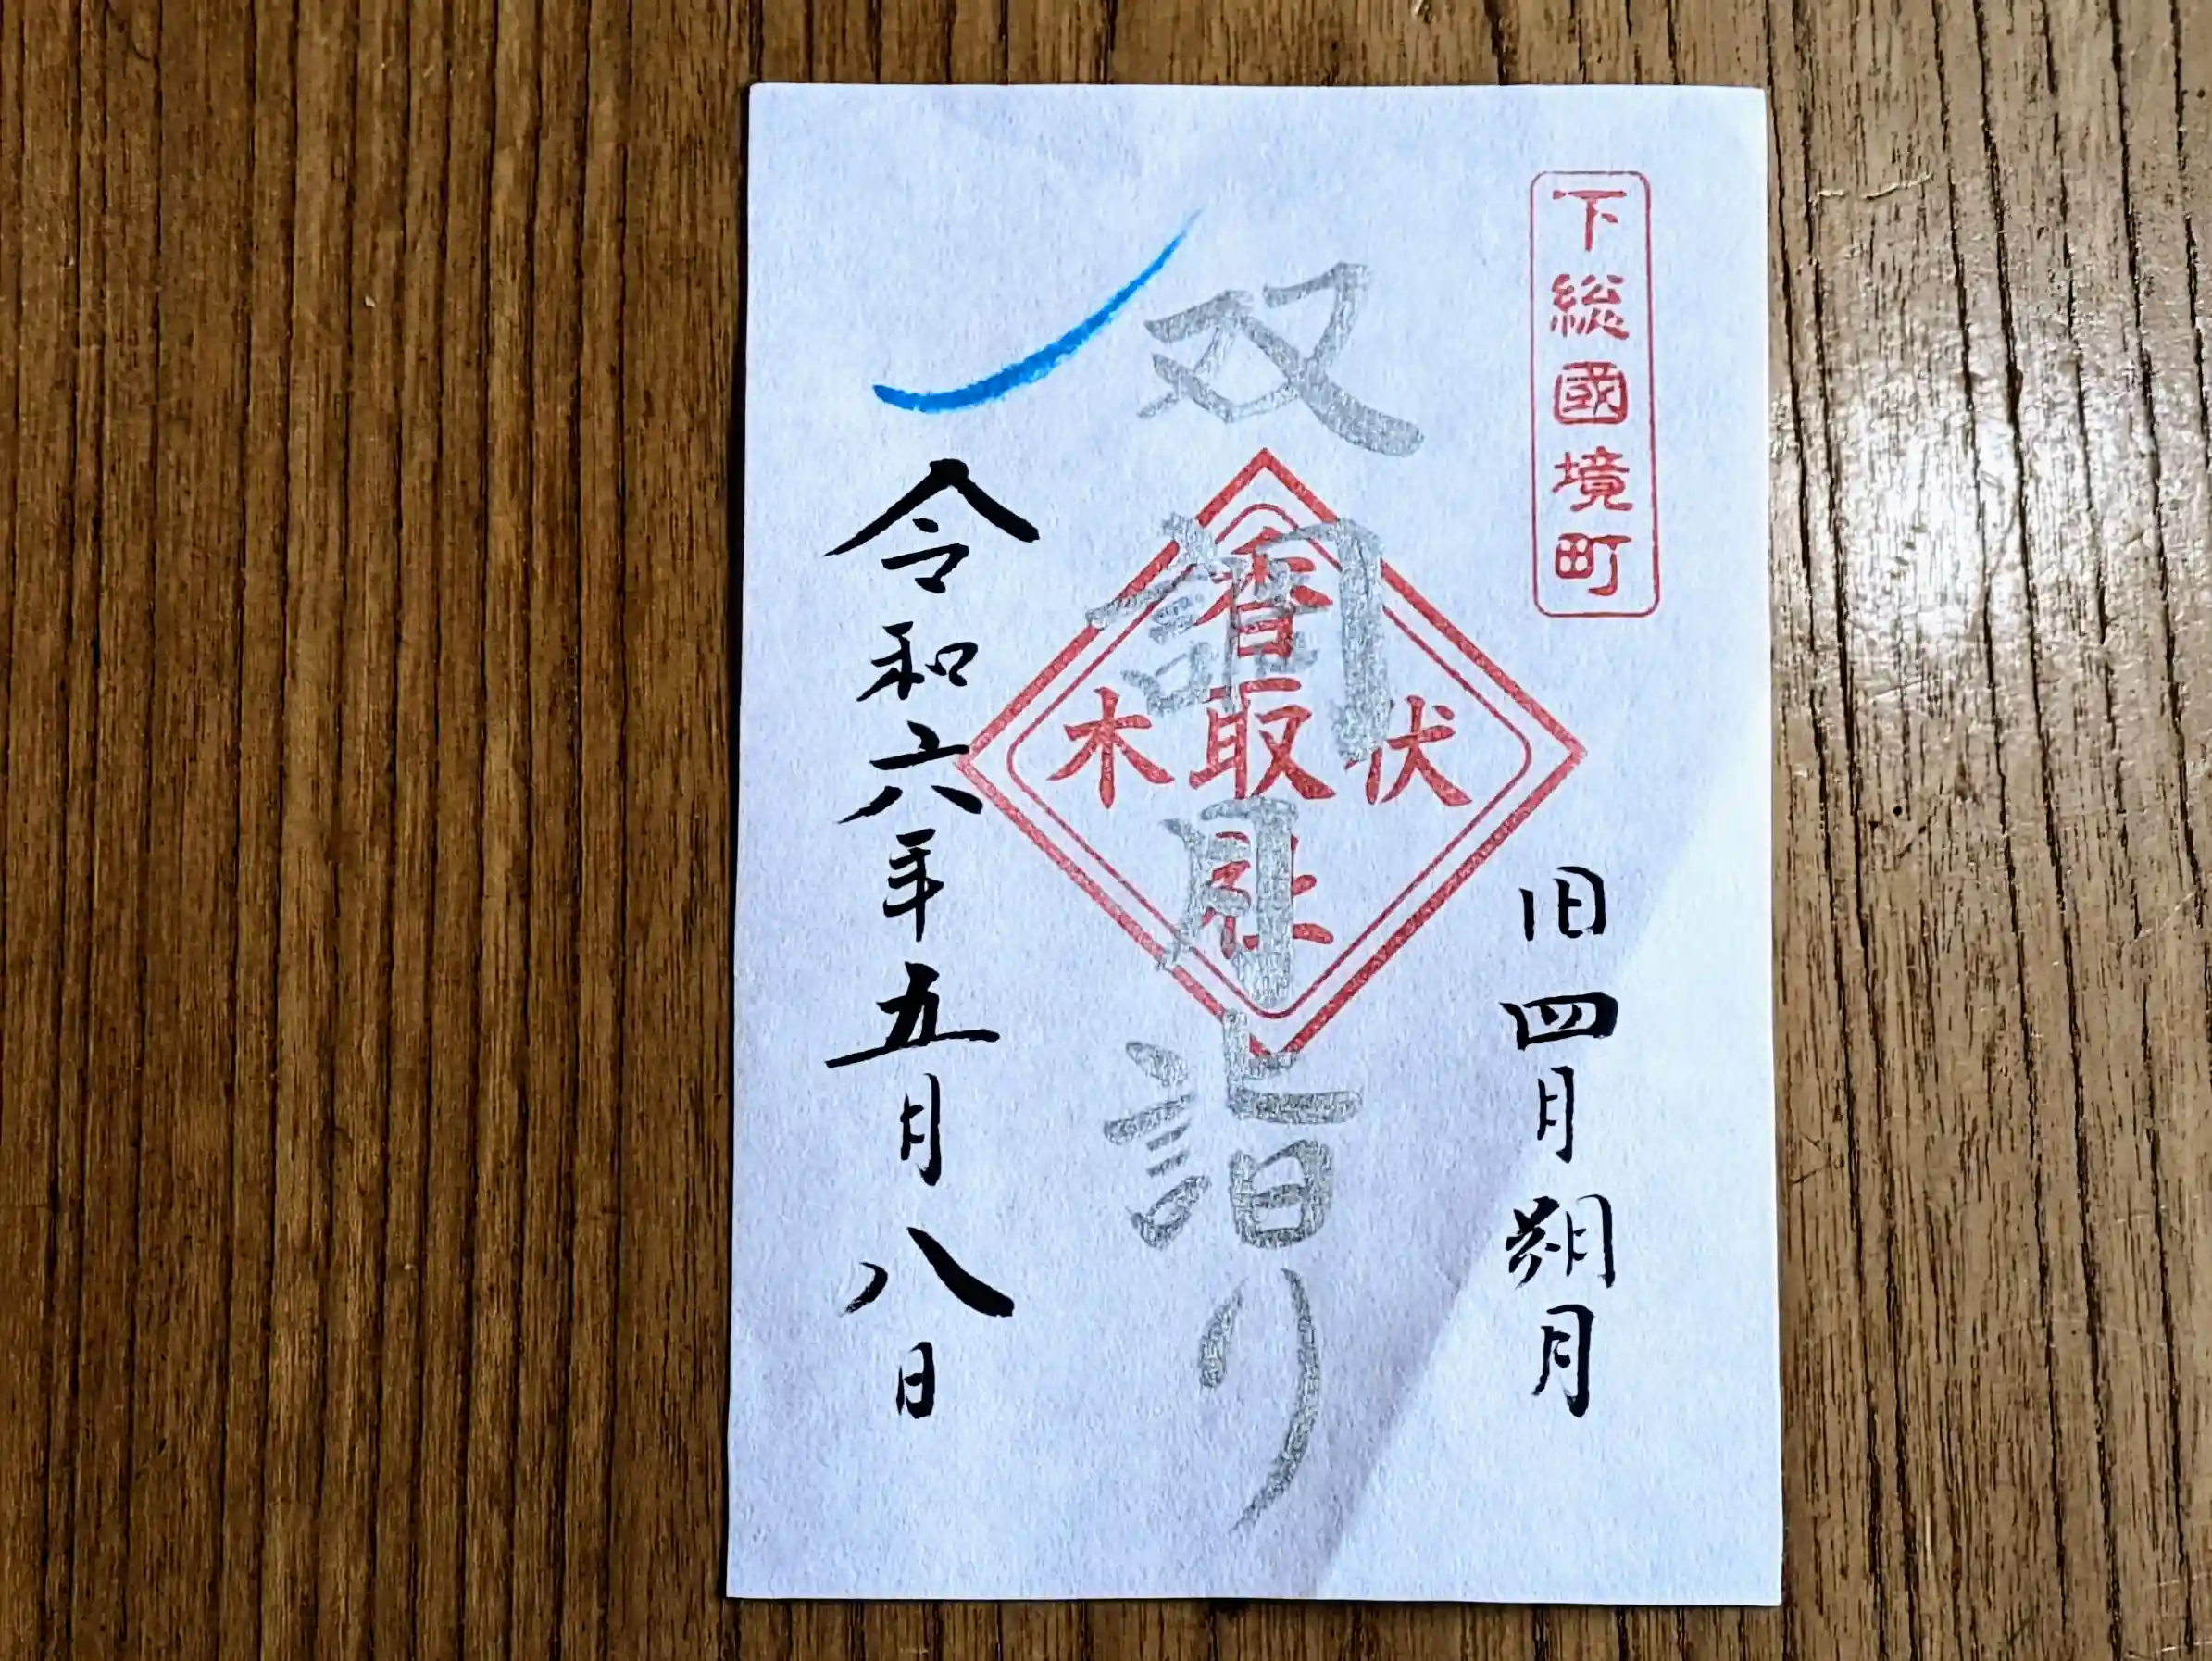 下総國境町
旧四月朔月
双
月詣り
香取社
伏木
令和六年五月八日